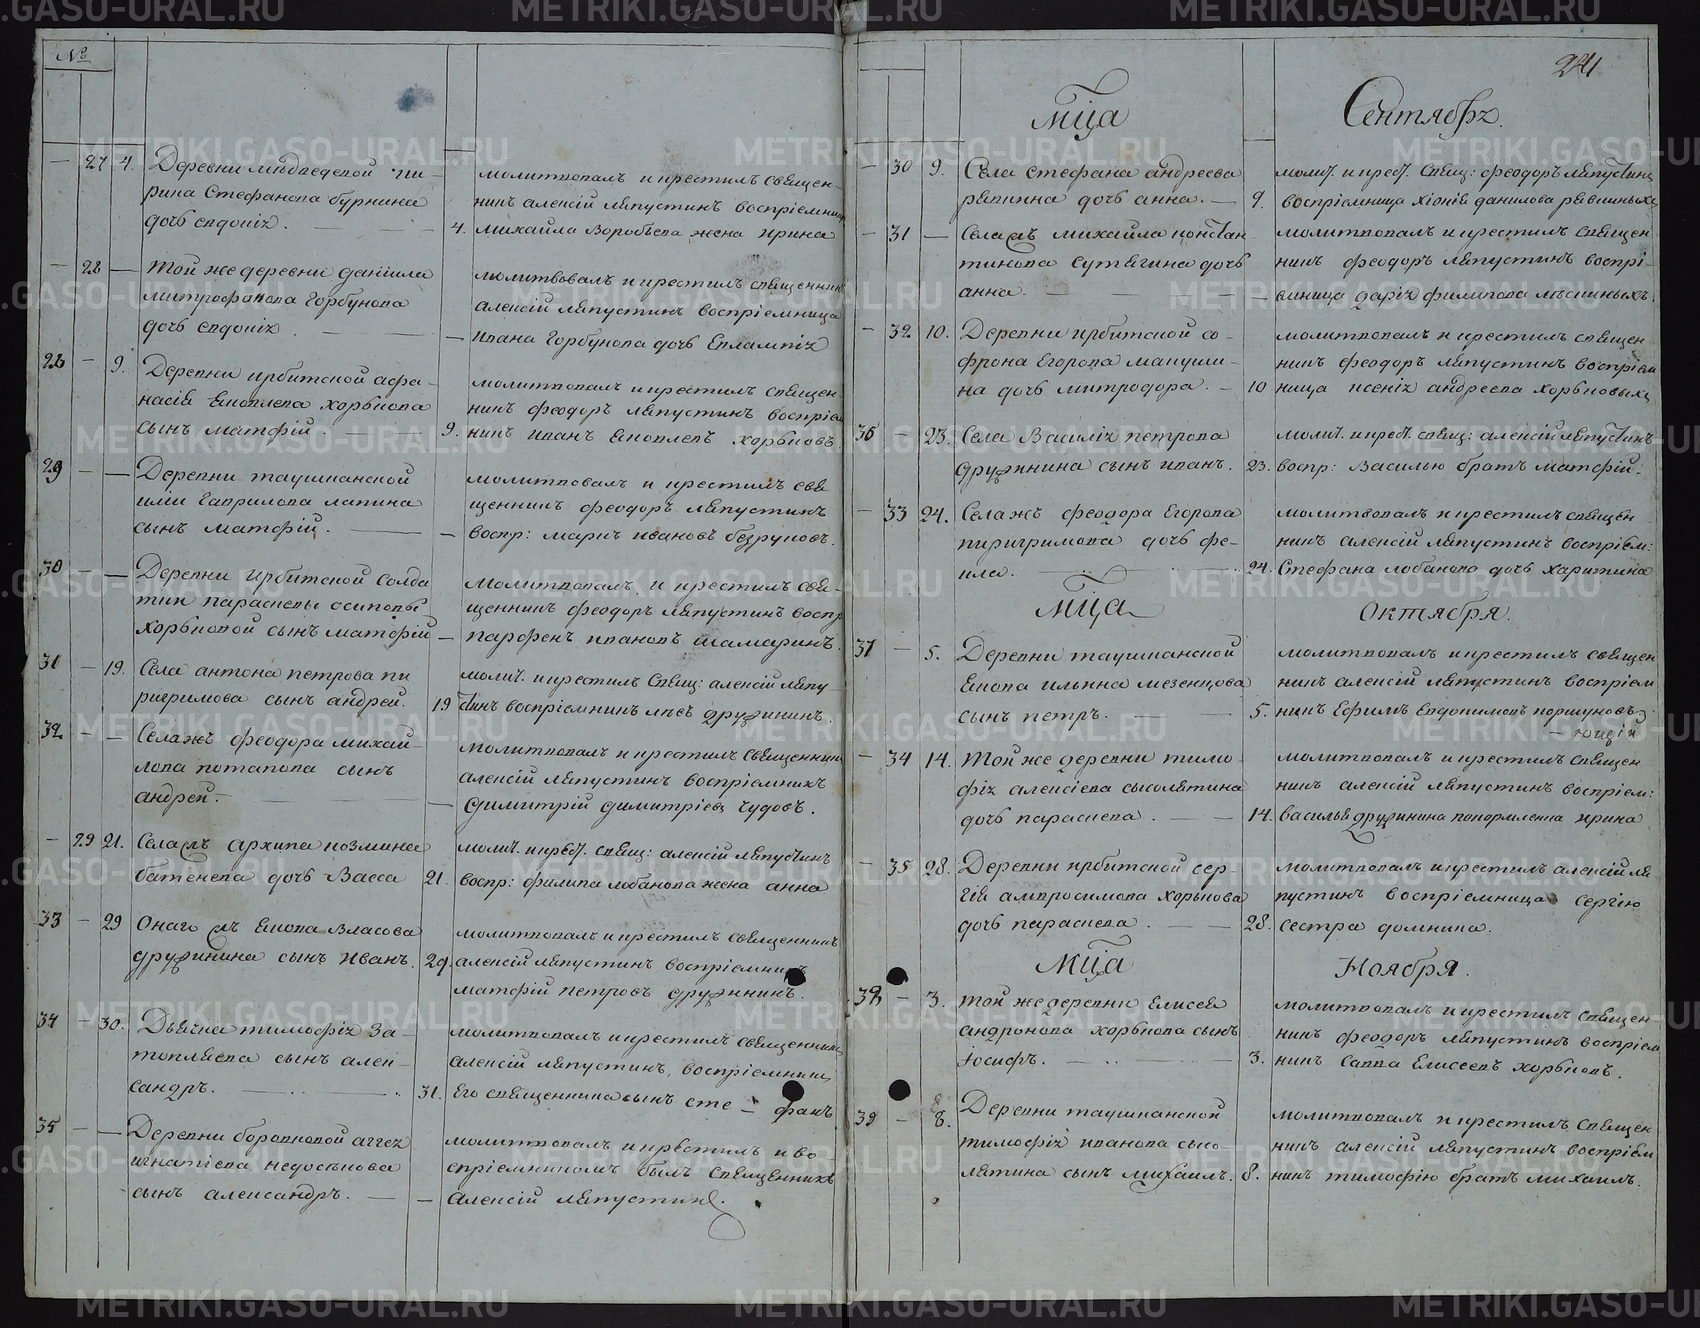 №
27 4. Деревни мѣдведевой ки-
рила Стефанова буркина
дочь евдокія.
молитвовалъ и крестилъ священ-
никъ алексій ляпустинъ воспріемница
4. михайла Воробьева жена ирина
28 — Той же деревни даніила
митрофанова горбунова
дочь евдокія.
молитвовалъ и крестилъ священникъ
алексій ляпустинъ воспріемница
— ивана Горбунова дочь Евлампія
28 — 9. Деревни ирбитской афа-
насія Іаковлева хорькова
сынъ матфій
молитвовалъ и крестилъ священ-
никъ феодоръ ляпустинъ воспріем
9. никъ иванъ Іаковлевъ хорьковъ
29 — — Деревни таушканской
иліи гаврилова лапина
сынъ матфій.
молитвовалъ и крестилъ свя
щенникъ феодоръ ляпустинъ
— воспр: марка ивановъ безруковъ.
30 — — Деревни ирбитской солда
тки параскевы осиповы
хорьковой сынъ матфій
молитвовалъ и крестилъ свя-
щенникъ феодоръ ляпустинъ воспр
— парфенъ ивановъ шамаринъ.
31 — 19. Села антона петрова пи
ригримова сынъ андрей.
молит. и крестилъ свящ: алексій ляпу-
19 стинъ воспріемникъ левъ дружининъ.
32 — — Села жъ феодора михай-
лова потапова сынъ
андрей.
молитвовалъ и крестилъ священникъ
алексій ляпустинъ воспріемникъ
— димитрій димитріевъ чудовъ.
— 29 21. Села жъ архипа козмина
батенева дочь Васса
молит. и крест. свящ: алексій ляпустинъ
21. воспр: филипа лобанова жена анна
33 — 29 Онаго жъ Іакова Власова
дружинина сынъ Иванъ.
молитвовалъ и крестилъ священникъ
29. алексій ляпустинъ воспріемникъ
матфій петровъ дружининъ.
34 — 30. Дьячка тимофія за-
топляева сынъ алек-
сандръ.
молитвовалъ и крестилъ священникъ
алексій ляпустинъ, воспріемникъ
31. его священника сынъ сте — фанъ
35 — — Деревни боровковой аггея
игнатіева недосѣкова
сынъ александръ.
молитвовалъ и крестилъ и во-
спріемникомъ былъ священникъ
— алексій ляпустинъ.
241
Мца Сентября.
— 30 9. Села стефана андреева
ряпкина дочь анна.
молит. и крест. свящ: феодоръ ляпустинъ
9. воспріемница хіонія данилова ряпкиныхъ
— 31 — Села жъ михайла констан-
тинова сутягина дочь
анна.
молитвовалъ и крестилъ священ
никъ феодоръ ляпустинъ воспрі-
— емница дарія филипова мѣскиныхъ.
— 32 10. Деревни ирбитской со-
фрона Егорова мануши-
на дочь митродора.
молитвовалъ и крестилъ священ
никъ феодоръ ляпустинъ воспріем
10 ница ксенія андреева хорьковыхъ
36 — 23. Села Василія петрова
дружинина сынъ иванъ.
молит. и крест. свящ: алексій ляпустинъ
23. воспр: Василью братъ матфій.
— 33 24. Села жъ феодора Егорова
пиригримова дочь фе-
кла.
молитвовалъ и крестилъ священ
никъ алексій ляпустинъ воспріем:
24. Стефана лобанова дочь харитина
Мца Октября.
37 — 5. Деревни таушканской
Іакова ильина мезенцова
сынъ петръ.
молитвовалъ и крестилъ священ
никъ алексій ляпустинъ воспріем
5. никъ Ефимъ Евдокимовъ коршуновъ
— 34 14. Той же деревни тимо-
фія алексіева сысолятина
дочь параскева.
молитвовалъ и крестилъ священ
никъ алексій ляпустинъ воспріем:
14. василья дружинина покормленка ирина
— 35 28. Деревни ирбитской сер-
гія амвросимова хорькова
дочь параскева.
молитвовалъ и крестилъ алексій ля
пустинъ воспріемница сергію
28. сестра домника.
Мца Ноября.
38 — 3. той же деревни Елисея
андронова хорькова сынъ
Іосифъ.
молитвовалъ и крестилъ священ-
никъ феодоръ ляпустинъ воспріем
3. никъ Савва Елисеевъ хорьковъ.
39 — 8. Деревни таушканской
тимофія иванова сысо-
лятина сынъ михаилъ.
молитвовалъ и крестилъ священ
никъ алексій ляпустинъ воспріем
8. никъ тимофію братъ михаилъ.